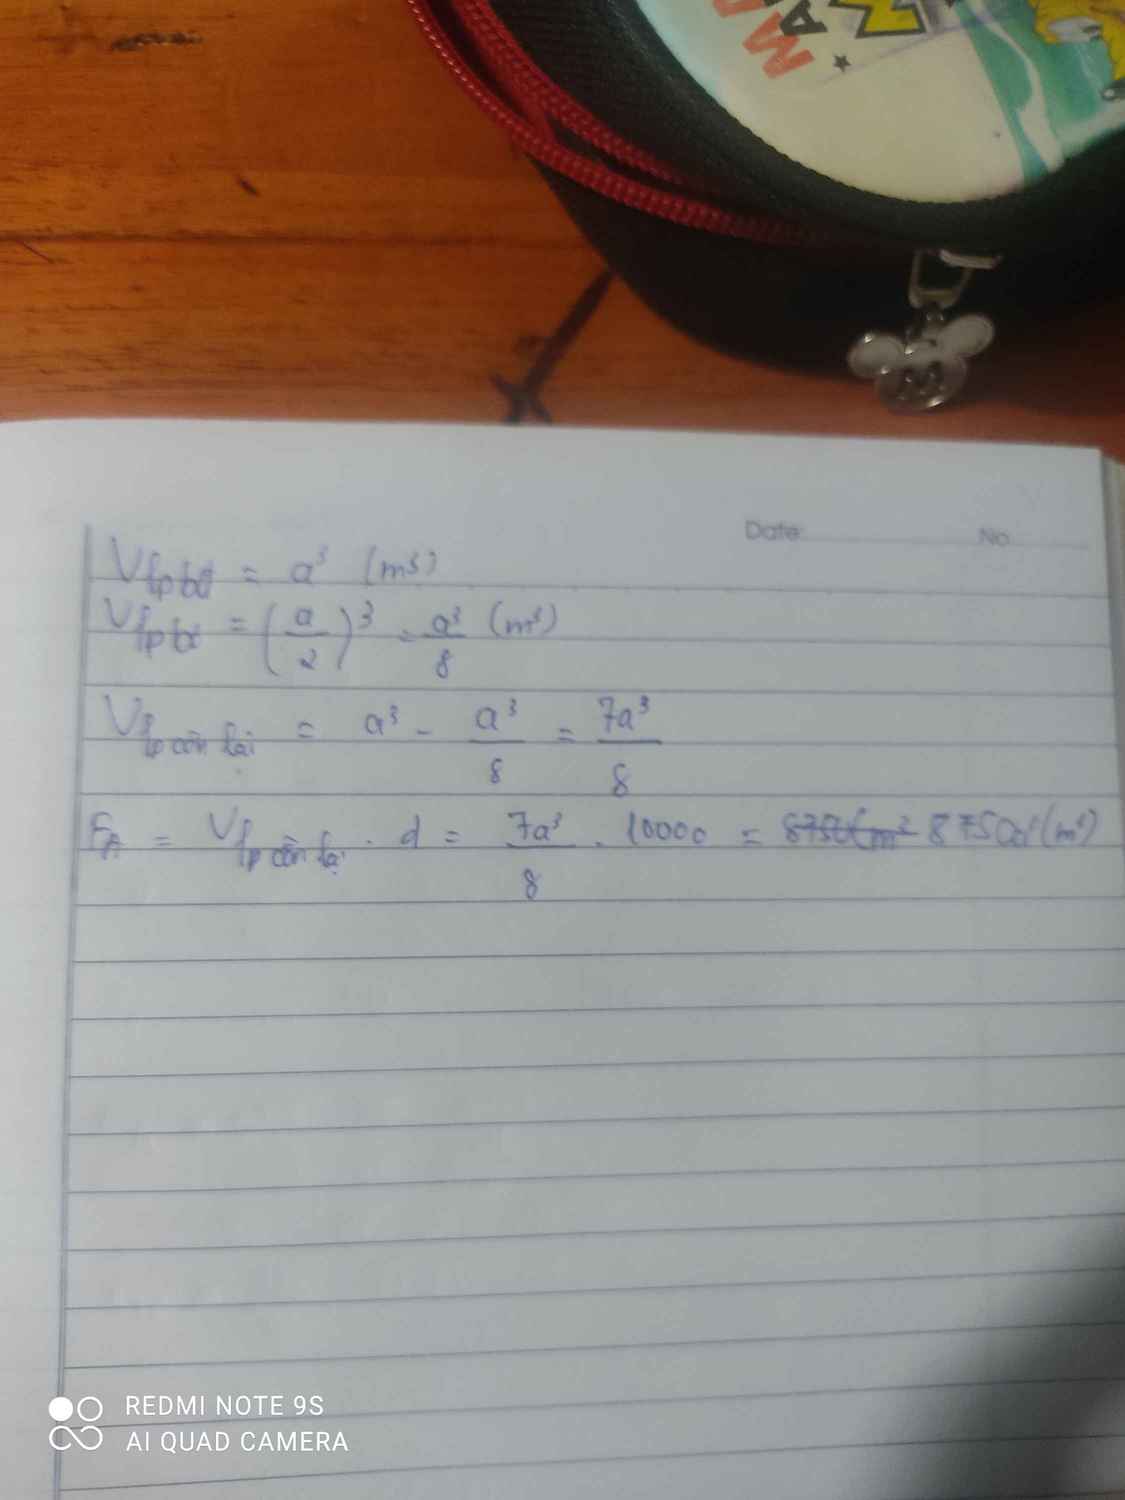 MA
Date: No
V lp bđ = a³ (m³)
V lp bé = (a/2)³ = a³/8 (m³)
V lp còn lại = a³ - a³/8 = 7a³/8
FA = V lp còn lại . d = 7a³/8 . 10000 = 8750a³ (m³)
REDMI NOTE 9S
AI QUAD CAMERA